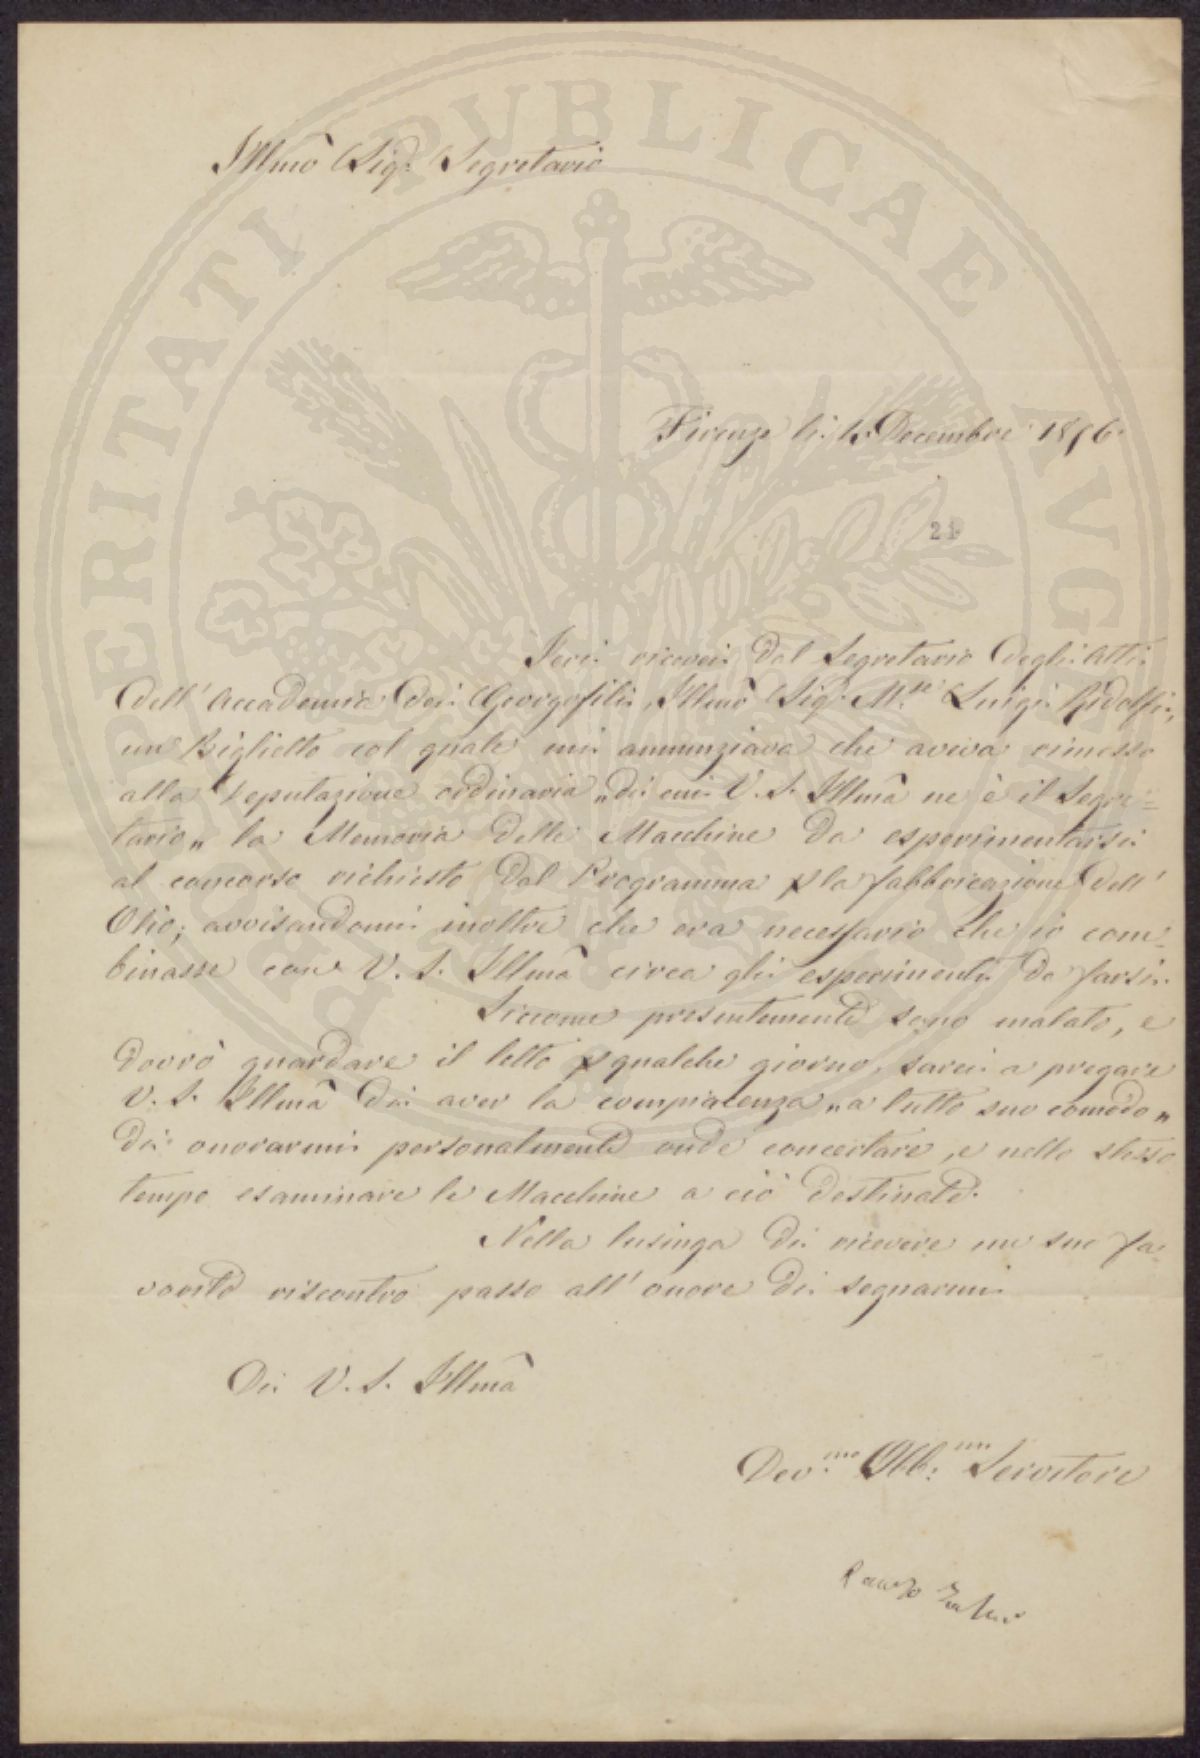 PROSPERITATI PUBLICAE AVGENDAE
Illmo Sig.r Segretario
Firenze li Decembre 1856.
21
Ieri ricevei dal Segretario degli Atti
dell' Accademia dei Georgofili, Illmo Sig.r M.se Luigi Ridolfi,
un Biglietto col quale mi annunziava che aveva rimesso
alla Deputazione ordinaria „di cui V. S. Illma ne è il Segre=
tario„ la Memoria delle Macchine da esperimentarsi
al concorso richiesto dal Programma p la fabbricazione dell'
Olio; avvisandomi inoltre che era necessario che io com=
binasse con V. S. Illma circa gli esperimenti da farsi.
Siccome presentemente sono malato, e
dovrò guardare il letto p qualche giorno, sarei a pregare
V. S. Illma di aver la compiacenza „a tutto suo comodo„
di onorarmi personalmente onde concertare, e nello stesso
tempo esaminare le Macchine a ciò destinate.
Nella lusinga di ricevere un suo fa=
vorito riscontro passo all' onore di segnarmi
Di V. S. Illma
Dev.mo Obb.mo Servitore